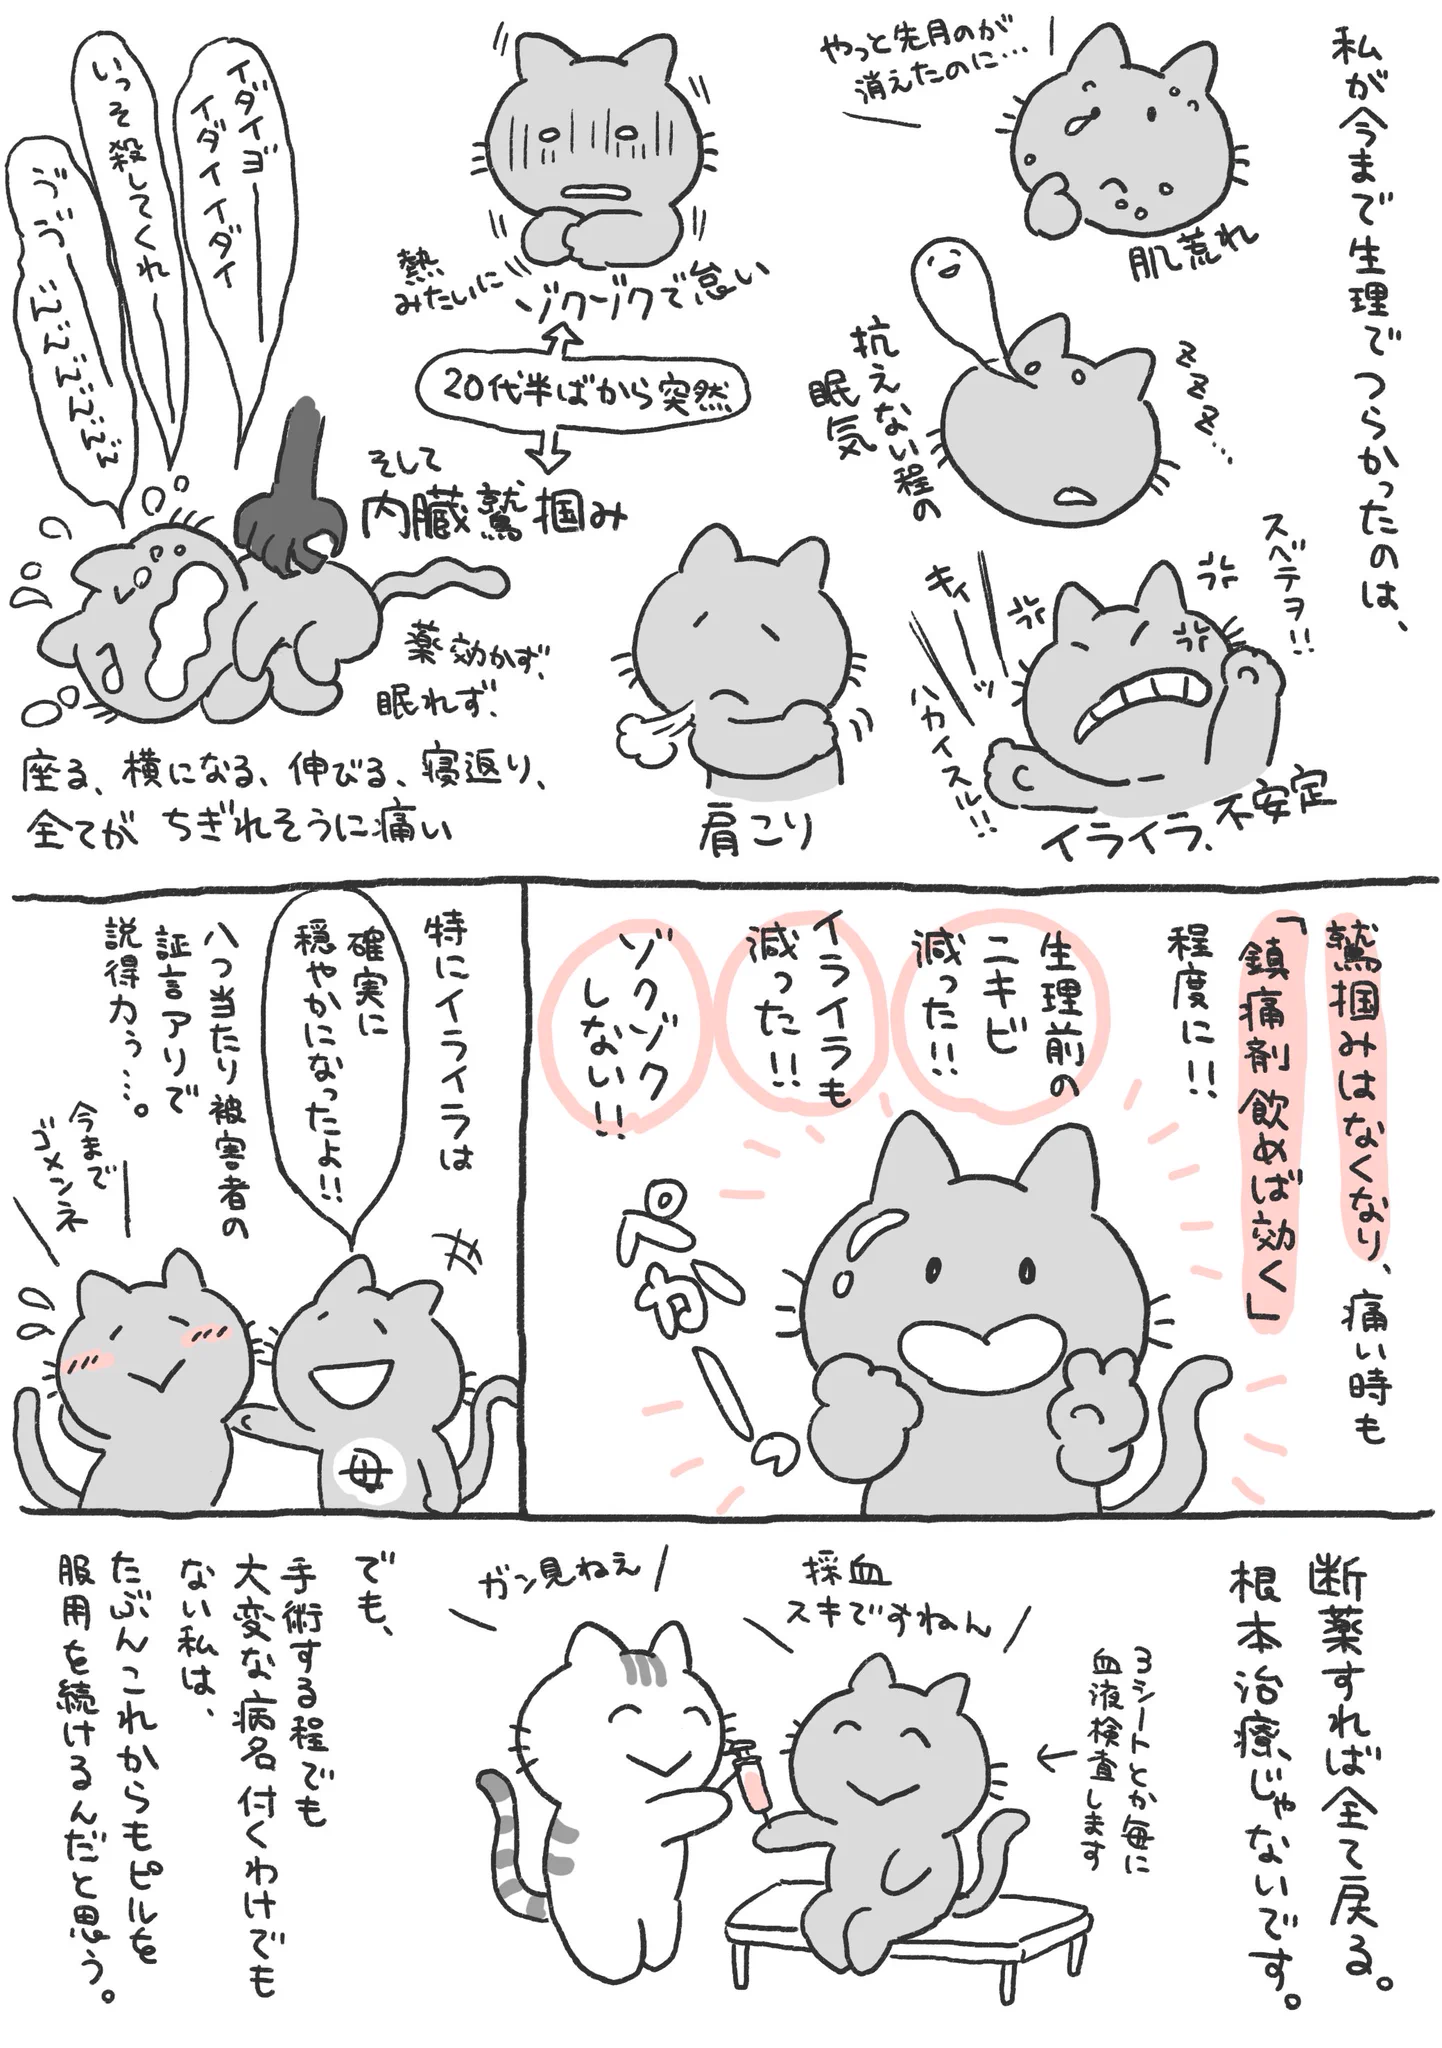 私が今まで生理でつらかったのは、
やっと先月のが
消えたのに…
肌荒れ
抗えない程の
眠気
zzzz…
スベテヲ!!
キィーーーッ
ハカイスル!!
イライラ、不安定
肩こり
熱
みたいに
ゾクゾクで怠い
20代半ばから突然
そして
内臓鷲掴み
イダイヨーー
イダイイダイ
いっそ殺してくれーー
薬効かず、
眠れず、
座る、横になる、伸びる、寝返り、
全てが ちぎれそうに痛い
鷲掴みはなくなり、痛い時も
「鎮痛剤 飲めば効く」
程度に!!
生理前の
ニキビ
減った!!
イライラも
減った!!
ゾクゾク
しない!!
ペかーっ
特にイライラは
確実に
穏やかになったよ!!
八つ当たり被害者の
証言アリで
説得力ぅ…。
今まで
ゴメンネ
母
断薬すれば全て戻る。
根本治療じゃないです。
3シートとか毎に
血液検査します
採血
スキですねん
ガン見ねえ
でも、
手術する程でも
大変な病名付くわけでも
ない私は、
たぶんこれからもピルを
服用を続けるんだと思う。